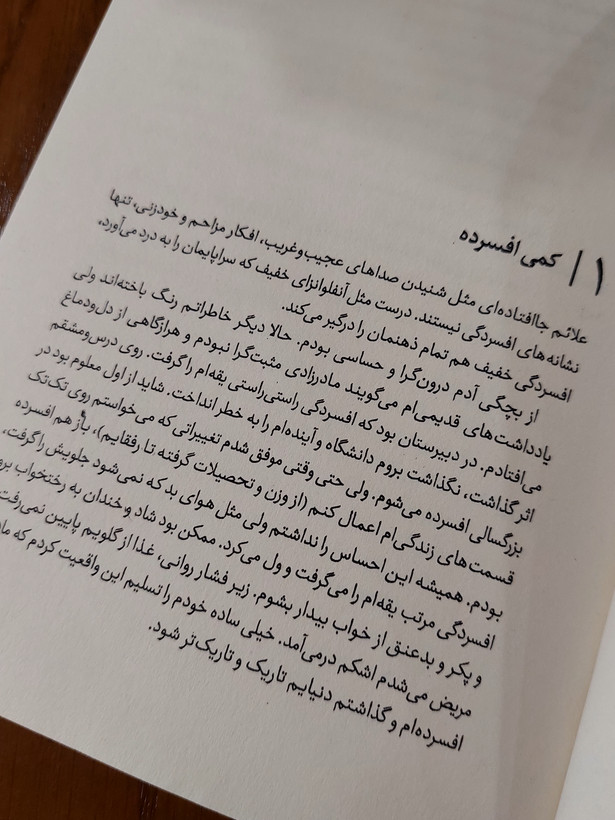 ۱ / کمی افسرده
علائم جاافتاده‌ای مثل شنیدن صداهای عجیب‌وغریب، افکار مزاحم و خودزنی، تنها
نشانه‌های افسردگی نیستند. درست مثل آنفلوانزای خفیف که سراپایمان را به درد می‌آورد،
افسردگی خفیف هم تمام ذهنمان را درگیر می‌کند.
از بچگی آدم درون‌گرا و حساسی بودم. حالا دیگر خاطراتم رنگ باخته‌اند ولی
یادداشت‌های قدیمی‌ام می‌گویند مادرزادی مثبت‌گرا نبودم و هرازگاهی از دل‌ودماغ
می‌افتادم. در دبیرستان بود که افسردگی راستی‌راستی یقه‌ام را گرفت. روی درس‌ومشقم
اثر گذاشت، نگذاشت بروم دانشگاه و آینده‌ام را به خطر انداخت. شاید از اول معلوم بود در
بزرگسالی افسرده می‌شوم. ولی حتی وقتی موفق شدم تغییراتی که می‌خواستم روی تک‌تک
قسمت‌های زندگی‌ام اعمال کنم (از وزن و تحصیلات گرفته تا رفقایم)، باز هم افسرده
بودم. همیشه این احساس را نداشتم ولی مثل هوای بد که نمی‌شود جلویش را گرفت،
افسردگی مرتب یقه‌ام را می‌گرفت و ول می‌کرد. ممکن بود شاد و خندان به رختخواب
و پکر و بدعنق از خواب بیدار بشوم. زیر فشار روانی، غذا از گلویم پایین نمی‌رفت
مریض می‌شدم اشکم درمی‌آمد. خیلی ساده خودم را تسلیم این واقعیت کردم که
افسرده‌ام و گذاشتم دنیایم تاریک و تاریک‌تر شود.